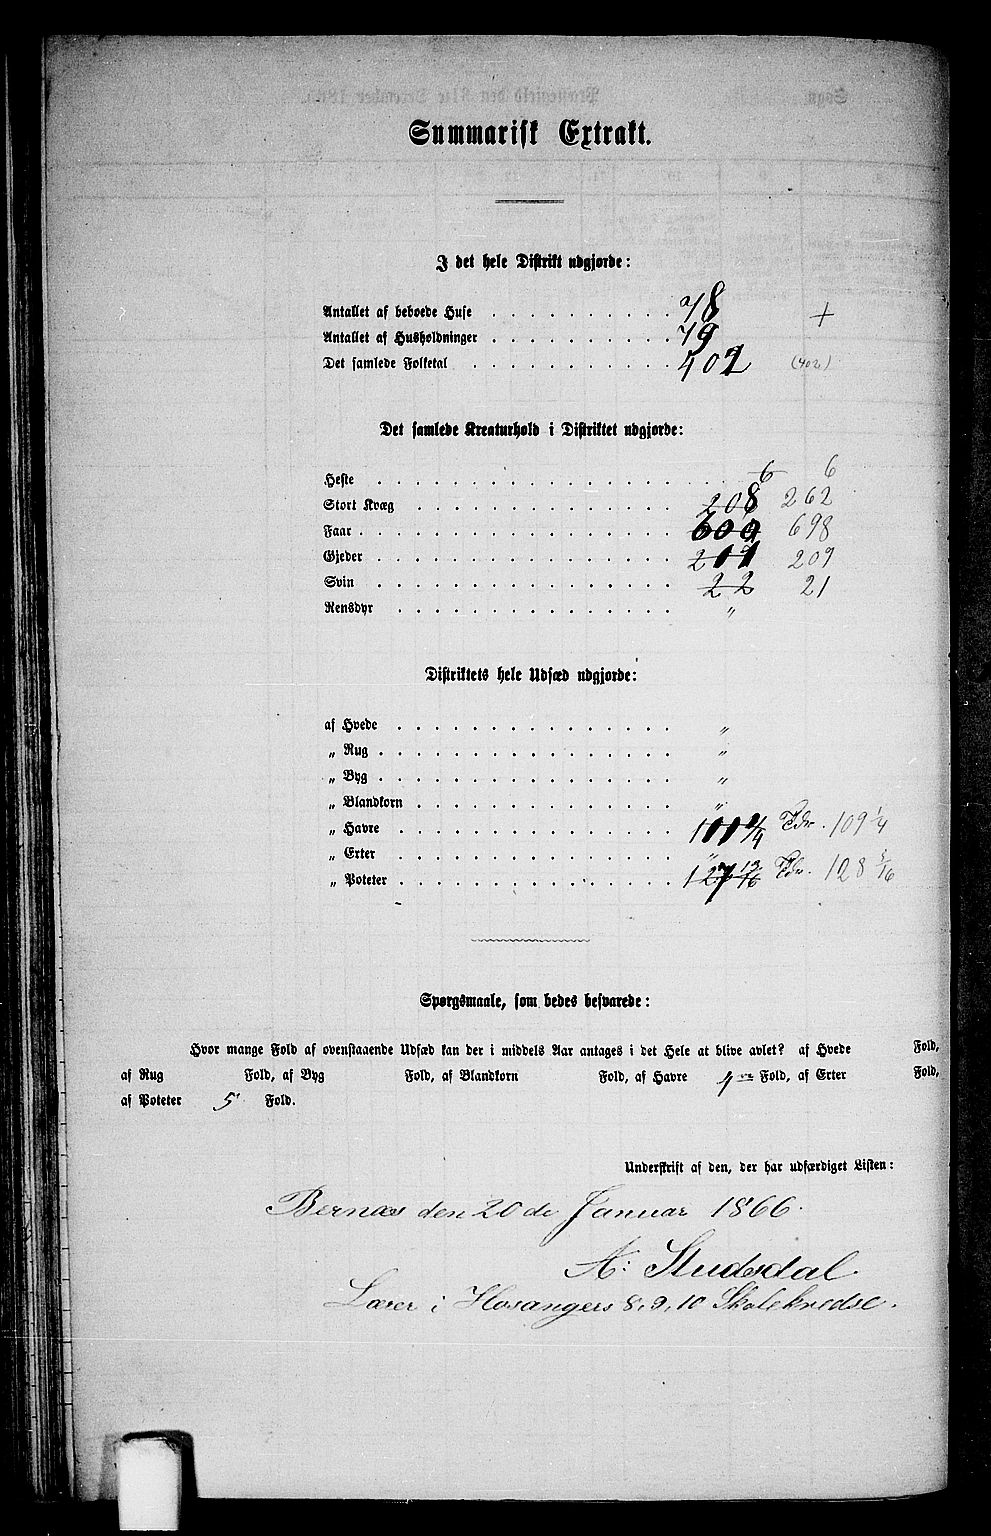 Summarisk Extrakt.
I det hele Distrikt udgjorde:
Antallet af beboede Huse 78 +
Antallet af Husholdninger 79
Det samlede Folketal 402 (402)
Det samlede Kreaturhold i Distriktet udgjorde:
Heste 6 6
Stort Kvæg 208 262
Faar 698
Gjeder 209
Svin 22 21
Rensdyr "
Distriktets hele Udsæd udgjorde:
af Hvede "
" Rug "
" Byg "
" Blandkorn "
" Havre Tdr. 109 1/4
" Erter "
" Poteter 127 13/16 Tdr. 128
Spørgsmaale, som bedes besvarede:
Hvor mange Fold af ovenstaaende Udsæd kan der i middels Aar antages i det Hele at blive avlet? af Hvede Fold,
af Rug Fold, af Byg Fold, af Blandkorn Fold, af Havre 4 Fold, af Erter Fold,
af Poteter 5 Fold.
Underskrift af den, der har udfærdiget Listen:
Bernæs den 20de Januar 1866.
A: Studsdal
Lærer i Hosangers 8, 9, 10 Skolekredse.